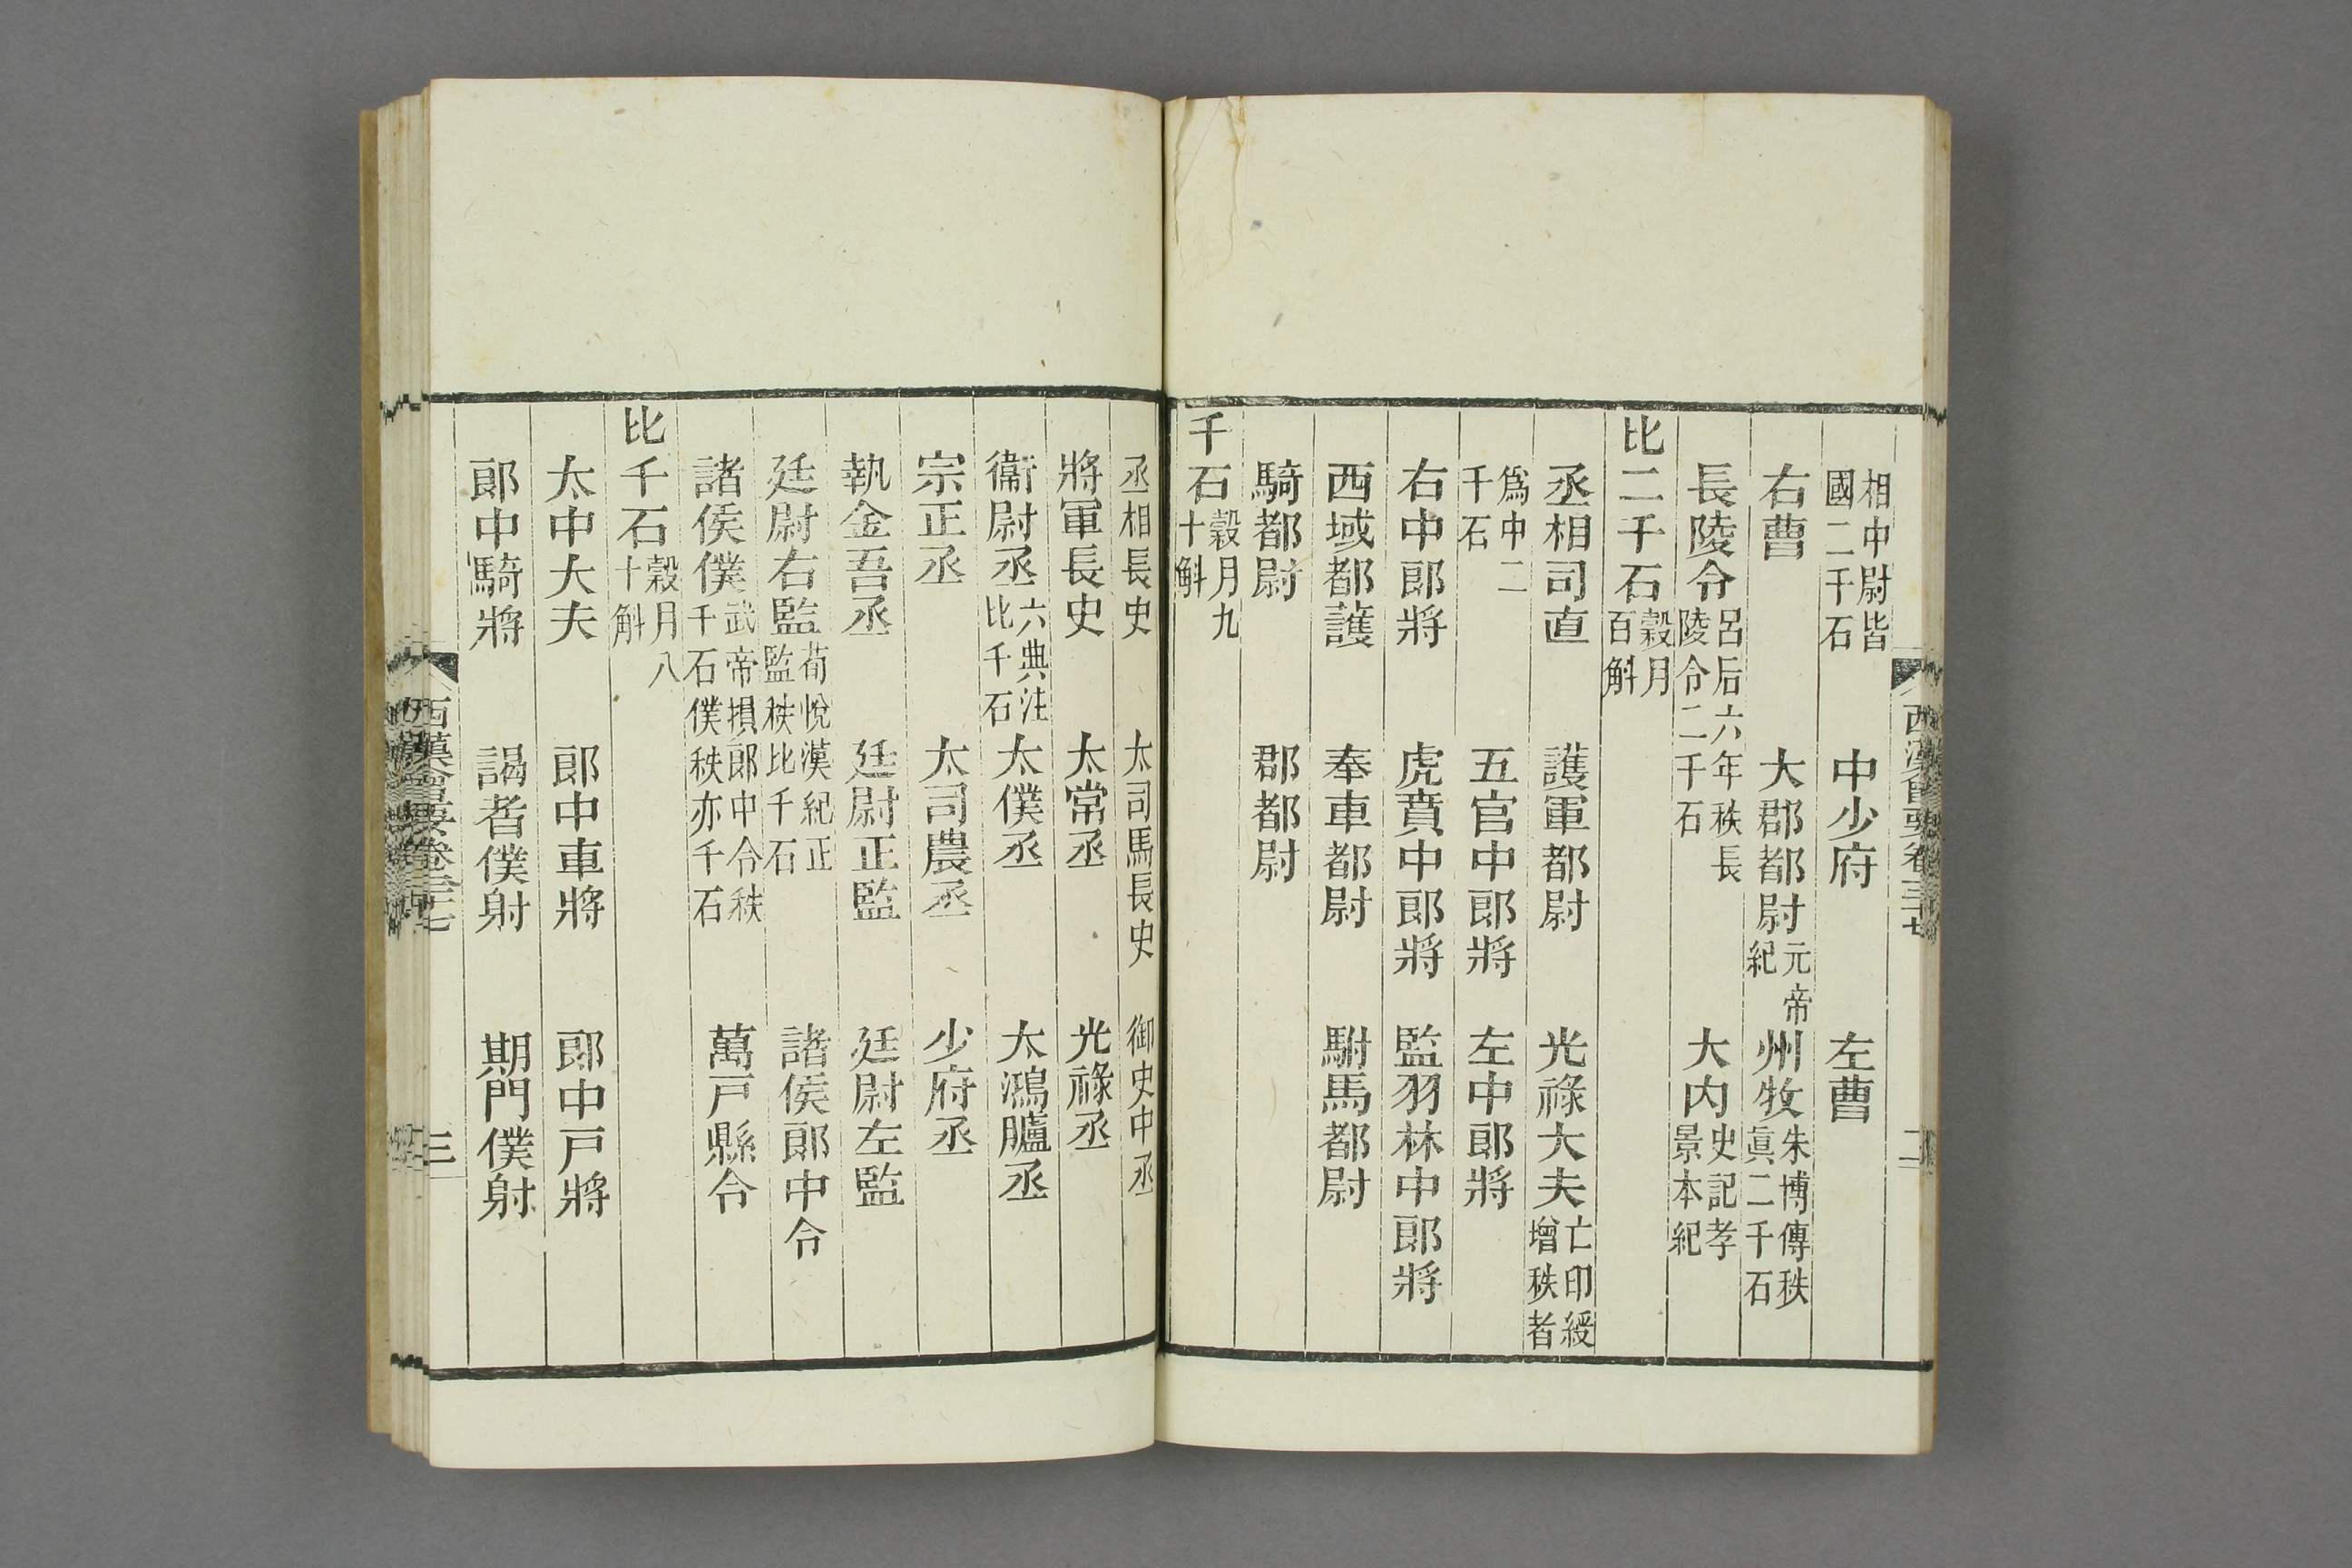 相中尉皆國二千石 中少府 左曹
右曹 大郡都尉元帝紀 州牧朱博傳秩眞二千石
長陵令呂后六年秩長陵令二千石 大內史記孝景本紀
比二千石穀月百斛
丞相司直 護軍都尉 光祿大夫亡印綬增秩者
爲中二千石 五官中郎將 左中郎將
右中郎將 虎賁中郎將 監羽林中郎將
西域都護 奉車都尉 駙馬都尉
騎都尉 郡都尉
千石穀月九十斛
丞相長史 太司馬長史 御史中丞
將軍長史 太常丞 光祿丞
衞尉丞六典注比千石 太僕丞 太鴻臚丞
宗正丞 太司農丞 少府丞
執金吾丞 廷尉正監 廷尉左監
廷尉右監荀悅漢紀正監秩比千石 諸侯郎中令
諸侯僕武帝損郎中令秩千石僕秩亦千石 萬戸縣令
比千石穀月八十斛
太中大夫 郎中車將 郎中戸將
郎中騎將 謁者僕射 期門僕射
西漢會要卷三十七 三